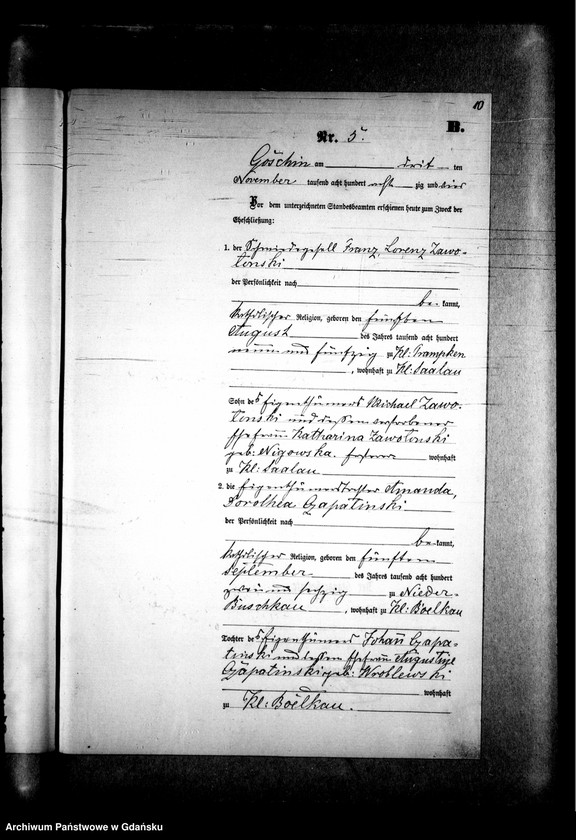 10
B.
Nr. 5.
Göschin am drit ten
November tausend acht hundert acht zig und vier
Vor dem unterzeichneten Standesbeamten erschienen heute zum Zweck der
Eheschließung:
1. der Schmiedegesell Franz, Lorenz Zawo-
tenski
der Persönlichkeit nach
be- kannt,
katholischer Religion, geboren den fünften
August des Jahres tausend acht hundert
neun und fünfzig zu Kl: Trampken
, wohnhaft zu Kl: Saalau
Sohn des Eigenthümers Michael Zawo-
tenski und dessen verstorbener
Ehefrau Katharina Zawotenski
geb: Nigowska. ersterer wohnhaft
zu Kl: Saalau
2. die Eigenthümertochter Amanda,
Dorothea Czapatinski
der Persönlichkeit nach
be- kannt,
katholischer Religion, geboren den fünften
September des Jahres tausend acht hundert
zwei und sechzig zu Nieder-
Buschkau , wohnhaft zu Kl: Boelkau
Tochter des Eigenthümers Johañ Czapa-
tinski und dessen Ehefrau Augustine
Czapatinski geb: Wroblewski
wohnhaft
zu Kl: Boelkau.
Archiwum Państwowe w Gdańsku